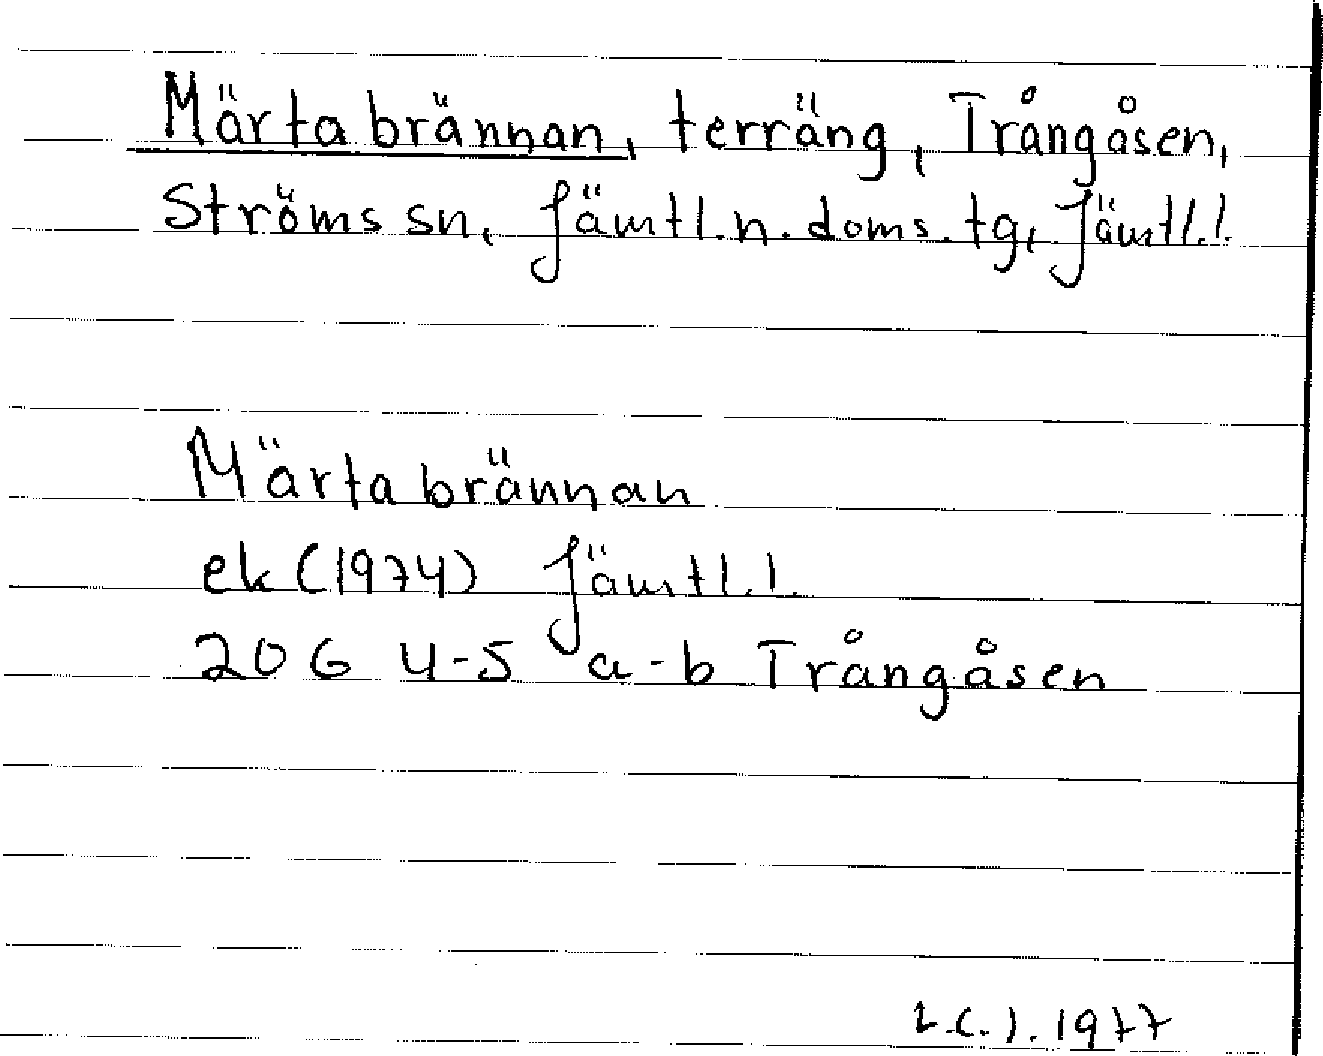 Märtabrännan, terräng, Trångåsen,
Ströms sn, Jämtl.n.doms.tg, Jämtl.l.
Märtabrännan
ek (1974) Jämtl.l.
20G 4-5 a-b Trångåsen
1977